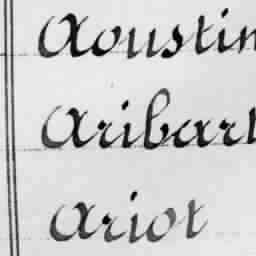 Aoustin
Aribart
Ariot